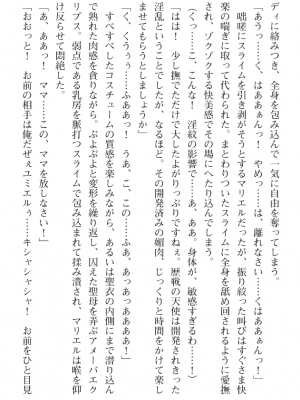 ディに絡みつき、全身を包み込んで一気に自由を奪ってしまう。
「あうっ……く、はああぁんっ！　やめっ……は、離れなさい……くはああぁんっ！」
咄嗟にスライムを引き剥がそうとするマリエルだったが、振り絞った叫びはすぐさま快
楽の喘ぎに取って代わられた。まとわりついたスライムに全身を舐め回されるように愛撫
され、ゾクゾクする快美感でその場にへたり込んでしまう。
（くっ……こ、こんな！　淫紋の影響で……、ああ。身体が、敏感すぎるわ……！）
「はは！　少し撫でただけで大したよがりっぷりですねぇ。歴戦の天使は開発されきった
淫乱ということでしたが、なるほど。その開発済みの媚肉、じっくりと時間をかけて楽し
ませてもらうとしましょうか」
「く、くうぅっ！　うあ、こ、この……ふあ、あっあっああああ！」
すべすべしたコスチュームの質感を楽しみながら、あるいは聖衣の内側にまで潜り込ん
で熟れた肉感を貪りながら、ぷよぷよと変形を繰り返し、囚えた聖母を弄ぶアメーバエク
リプス。弱点である乳房を脈打つスライムで包み込まれて揉み潰され、マリエルは喉を仰
け反らせて悶絶した。
「あ、ああっ！　ママ……この、ママを放しなさい！」
「おおっと！　お前の相手は俺だぜぇユミエルぅ……キシャシャシャ！　お前をひと目見